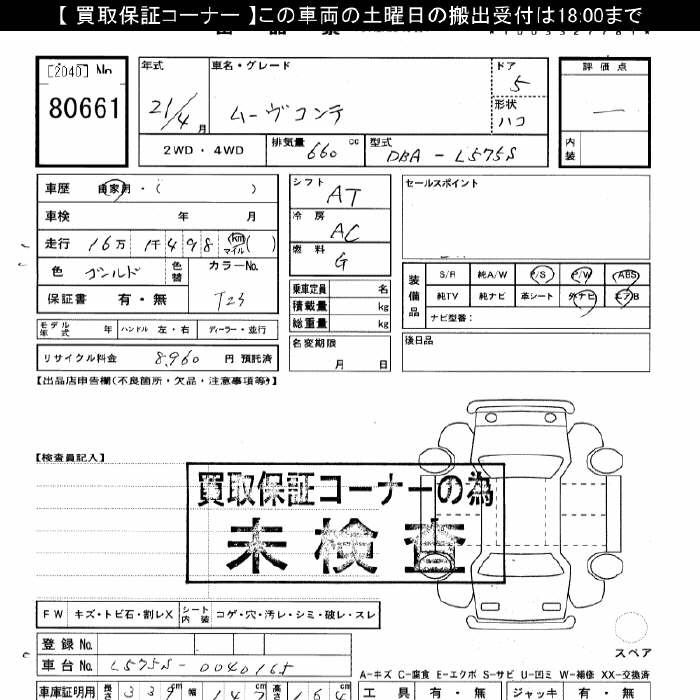 【 買取保証コーナー 】この車両の土曜日の搬出受付は18:00まで
[2040] No
80661
年式
21/4 月
車名・グレード
ムーヴコンテ
ドア
5
形状
ハコ
評価点
—
内装
2WD・4WD
排気量 660 cc
型式 DBA - L575S
車歴 自家用・( )
車検 年 月
走行 16万 1千 498 km マイル ( )
色 ゴールド 色替
カラーNo.
T23
保証書 有・無
モデル年式 年 ハンドル 左・右 ディーラー・並行
リサイクル料金 8,960 円 預託済
シフト
AT
冷房
AC
燃料
G
乗車定員 名
積載量 kg
総重量 kg
名変期限
月 日
セールスポイント
装備品
S/R 純A/W P/S P/W ABS
純TV 純ナビ 革シート 外ナビ エアB
ナビ型番:
後日品
【出品店申告欄(不良箇所・欠品・注意事項等)】
【検査員記入】
買取保証コーナーの為
未検査
FW キズ・トビ石・割レX シート内装 コゲ・穴・汚レ・シミ・破レ・スレ
登録No.
車台No. L575S - 0040165
スペア
A-キズ C-腐食 E-エクボ S-サビ U-凹ミ W-補修 XX-交換済
車庫証明用 長さ 339 cm 幅 147 高さ 164
工具 有・無 ジャッキ 有・無